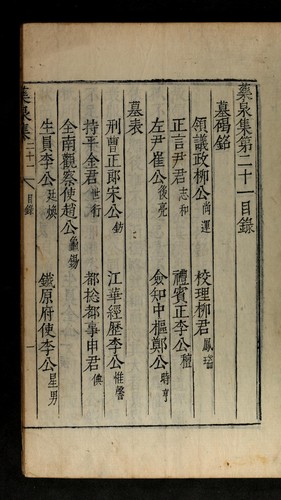 藥泉集第二十一目錄
墓碣銘
領議政柳公尙運 校理柳君鳳瑞
正言尹君志和 禮賓正李公穜
左尹崔公後亮 僉知中樞鄭公時亨
墓表
刑曹正郞宋公 江華經歷李公惟馨
持平金君世衍 都捴都事申君㒓
全南觀察使趙公龜錫
生員李公廷煥 鐵原府使李公星男
藥泉集 二十一 目錄 一